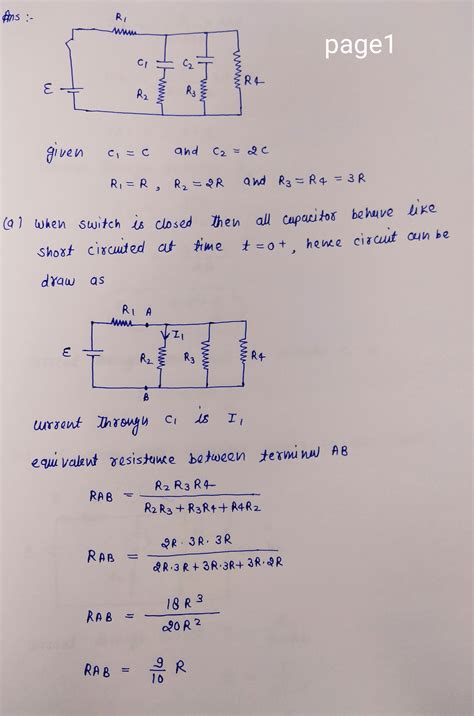 Ans :-
R1
page1
C1
C2
E
R2
R3
R4
given C1 = C and C2 = 2C
R1 = R , R2 = 2R and R3 = R4 = 3R
(a) When switch is closed then all capacitor behave like
short circuited at time t = 0+ , hence circuit can be
draw as
R1 A
I1
E
R2
R3
R4
B
current through C1 is I1
equivalent resistance between terminal AB
RAB = R2 R3 R4 / R2 R3 + R3 R4 + R4 R2
RAB = 2R · 3R · 3R / 2R · 3R + 3R · 3R + 3R · 2R
RAB = 18 R^3 / 20 R^2
RAB = 9/10 R